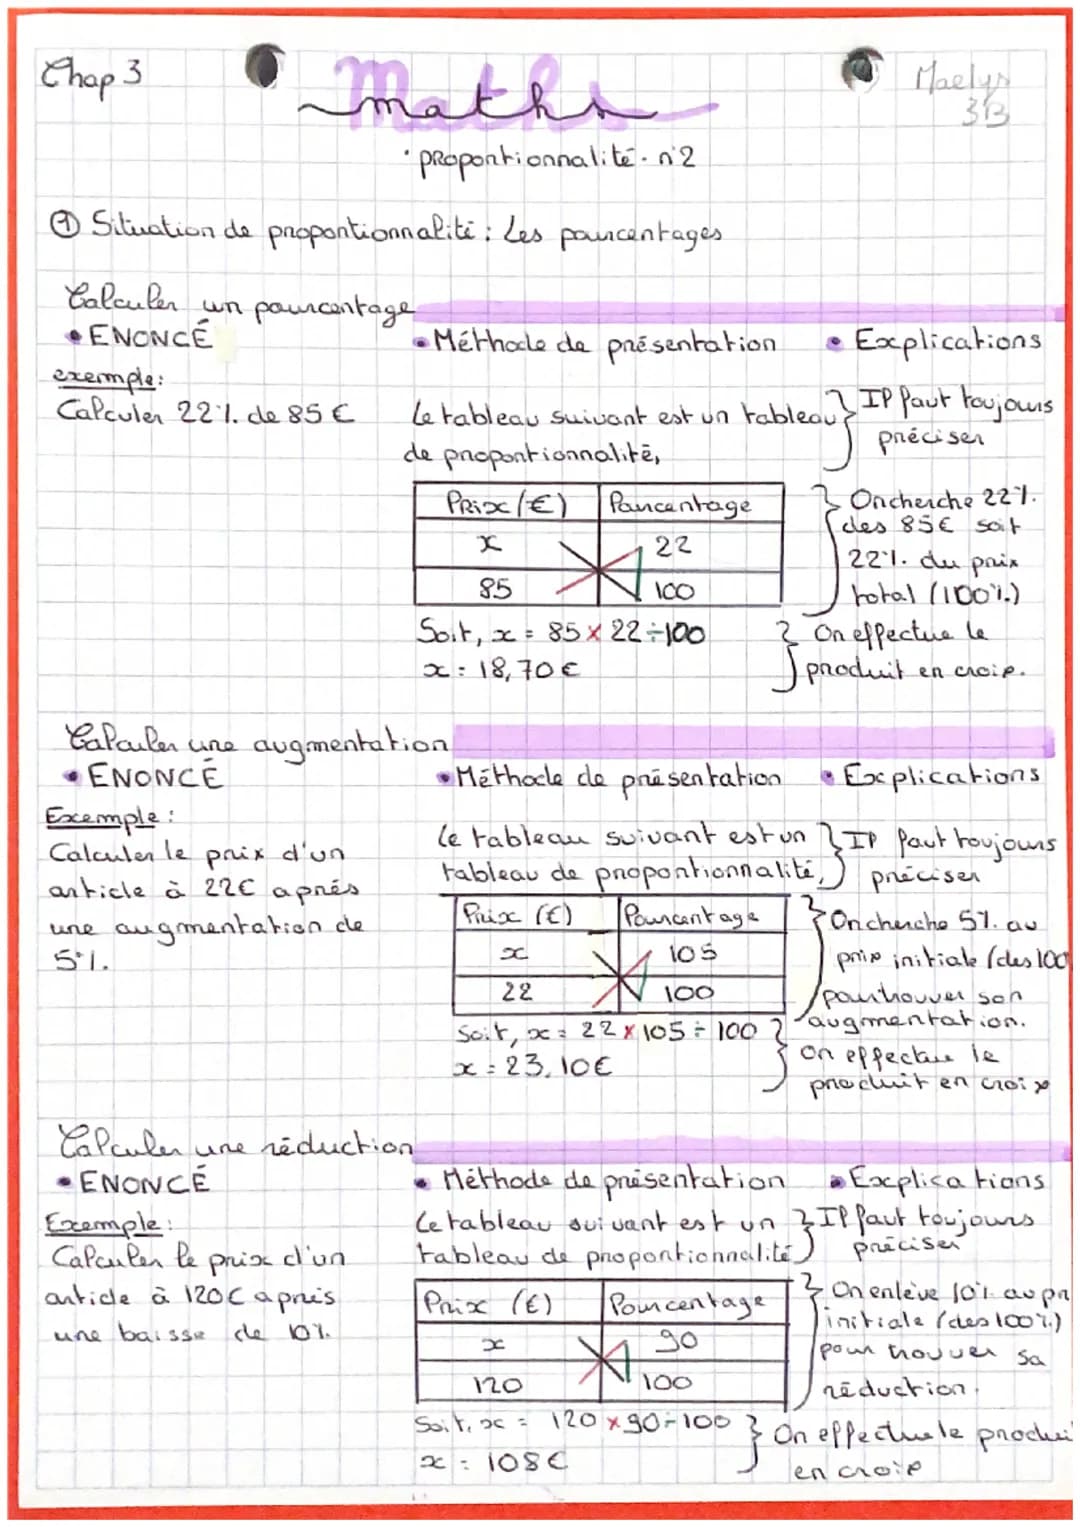 Chap 3
Maths
maths
Maelys
3B
• proportionnalité. n°2
① Situation de proportionnalité : Les pourcentages
Calculer un pourcentage
• ENONCÉ
• Méthode de présentation
• Explications
exemple:
Calculer 22% de 85 €
Le tableau suivant est un tableau
de proportionnalité,
Il faut toujours
préciser
Prix (€) Pourcentage
x 22
85 100
On cherche 22%
des 85€ soit
22% du prix
total (100%)
Soit, x = 85 x 22 ÷ 100
x = 18,70 €
On effectue le
produit en croix.
Calculer une augmentation
• ENONCÉ
• Méthode de présentation
• Explications
Exemple :
Calculer le prix d'un
article à 22€ après
une augmentation de
5%.
Le tableau suivant est un
tableau de proportionnalité,
Il faut toujours
préciser
Prix (€) Pourcentage
x 105
22 100
On cherche 5% au
prix initiale (des 100
pour trouver son
augmentation.
Soit, x = 22 x 105 ÷ 100
x = 23,10€
On effectue le
produit en croix
Calculer une réduction
• ENONCÉ
• Méthode de présentation
• Explications
Exemple :
Calculer le prix d'un
article à 120€ après
une baisse de 10%.
Le tableau suivant est un
tableau de proportionnalité,
Il faut toujours
préciser
Prix (€) Pourcentage
x 90
120 100
On enlève 10% au pr
initiale (des 100%)
pour trouver sa
réduction.
Soit, x = 120 x 90 ÷ 100
x = 108€
On effectue le produi
en croix